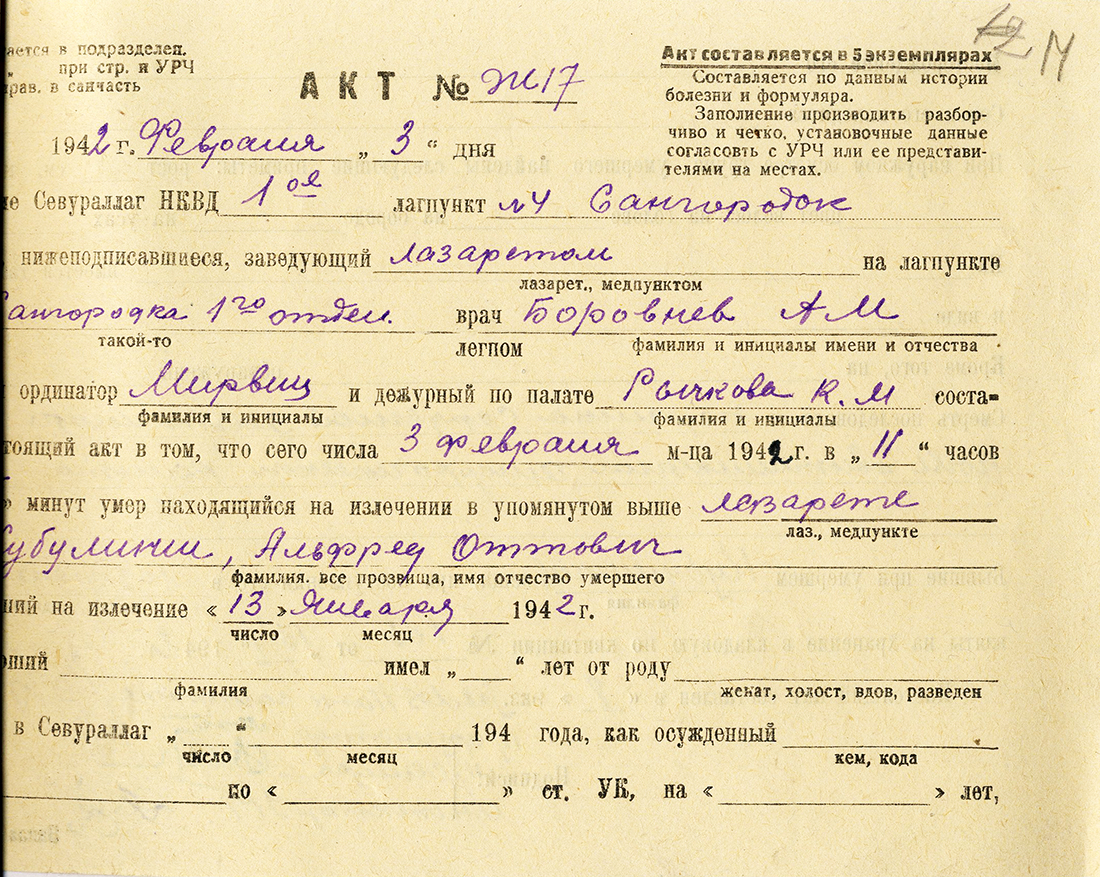 яется в подразделен.
при стр. и УРЧ
рав. в санчасть
АКТ №
17
Акт составляется в 5 экземплярах
Составляется по данным истории
болезни и формуляра.
Заполнение производить разбор-
чиво и четко, установочные данные
согласовть с УРЧ или ее представи-
телями на местах.
1942 г. Февраля „ 3 “ дня
ие Севураллаг НКВД 1ое лагпункт №4 Сангородок
нижеподписавшиеся, заведующий лазаретом на лагпункте
лазарет., медпунктом
Сангородка 1го отдел. врач Боровнев А М
такой-то легпом фамилия и инициалы имени и отчества
ординатор Мирвиц и дежурный по палате Рычкова К. М соста-
фамилия и инициалы фамилия и инициалы
тоящий акт в том, что сего числа 3 февраля м-ца 1942 г. в „ 11 “ часов
минут умер находящийся на излечении в упомянутом выше лазарете
лаз., медпункте
Альфред Оттович
фамилия. все прозвища, имя отчество умершего
ший на излечение « 13 » Января 1942 г.
число месяц
рший имел „ “ лет от роду
фамилия женат, холост, вдов, разведен
в Севураллаг „ “ 194 года, как осужденный
число месяц кем, кода
по « » ст. УК, на « » лет,